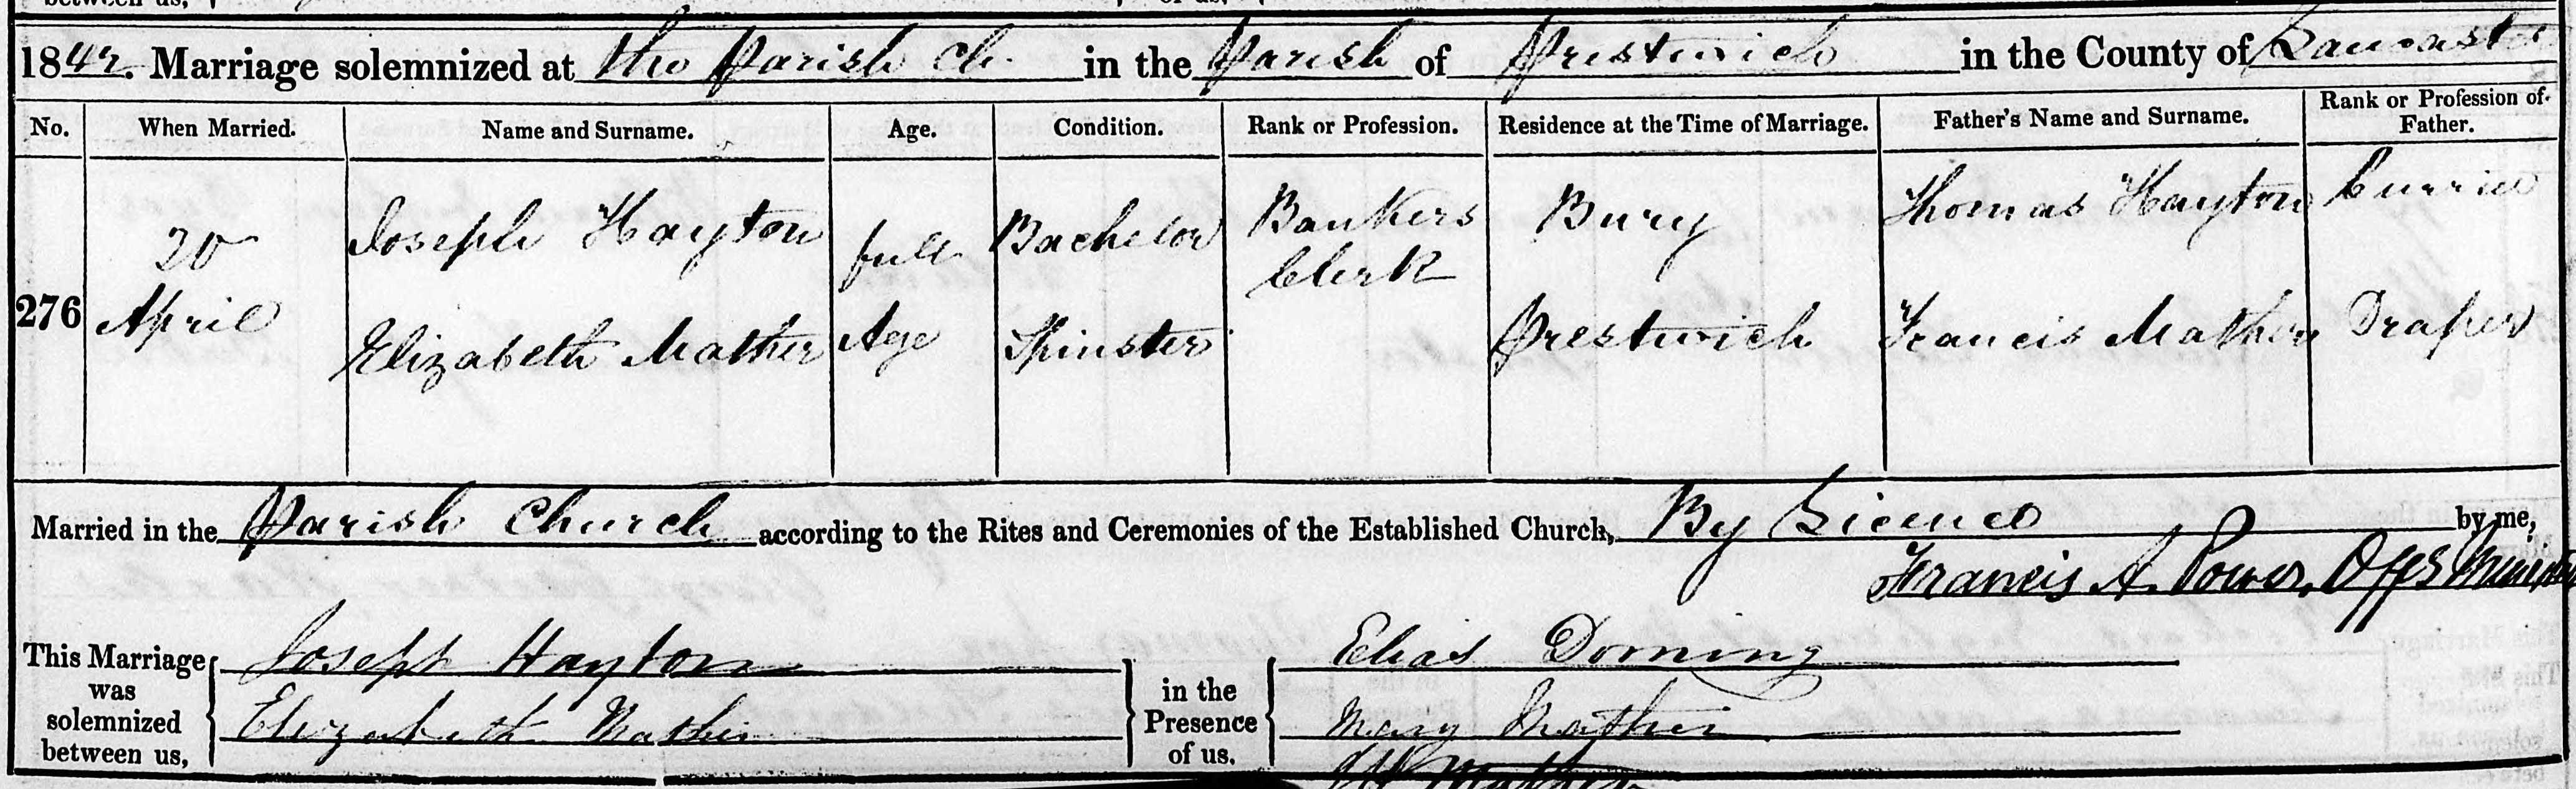 between us,
of us,
1842. Marriage solemnized at the Parish Ch. in the Parish of Prestwich in the County of Lancaster
No. When Married. Name and Surname. Age. Condition. Rank or Profession. Residence at the Time of Marriage. Father's Name and Surname. Rank or Profession of Father.
276
20
April
Joseph Hayton full Bachelor Bankers Clerk Bury Thomas Hayton Currier
Elizabeth Mather Age Spinster Prestwich Francis Mather Draper
Married in the Parish Church according to the Rites and Ceremonies of the Established Church, By Licence by me,
Francis A. Power, Offg Minister
This Marriage was solemnized between us,
Joseph Hayton
Elizabeth Mather
in the Presence of us.
Elias Dorning
Mary Mather
Mather